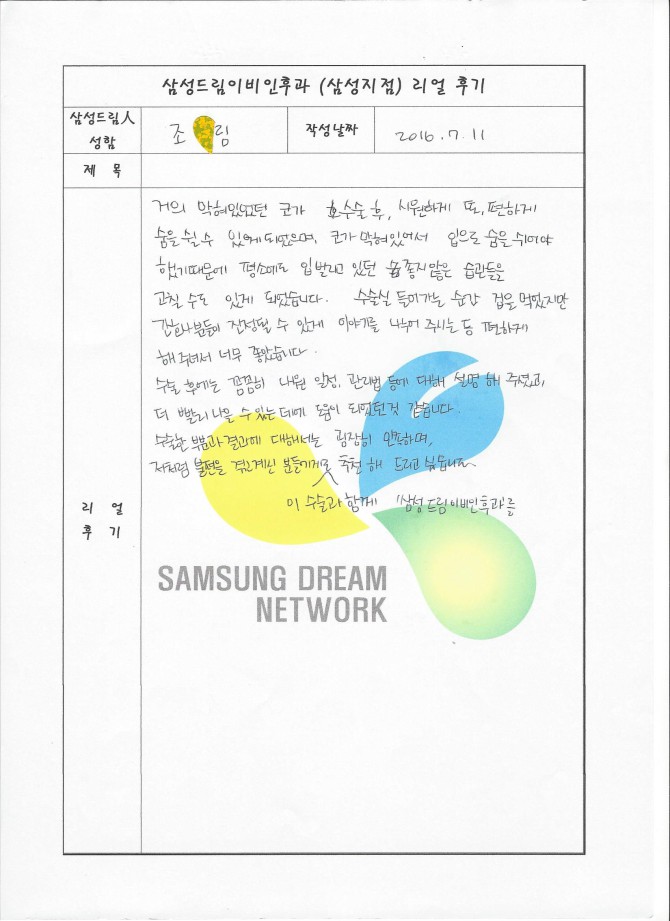 삼성드림이비인후과 (삼성지점) 리얼 후기
삼성드림人 성함
조 림
작성날짜
2016. 7. 11
제 목
거의 막혀있었던 코가 수술 후, 시원하게 또, 편하게
숨을 쉴 수 있게 되었으며, 코가 막혀있어서 입으로 숨을 쉬어야
했기때문에 평소에도 입 벌리고 있던 좋지않은 습관들을
고칠 수도 있게 되었습니다. 수술실 들어가는 순간 겁을 먹었지만
간호사분들이 진정될 수 있게 이야기를 나누어 주시는 등 편하게
해주셔서 너무 좋았습니다.
수술 후에는 꼼꼼히 내원 일정, 관리법 등에 대해 설명 해 주셨고,
더 빨리 나을 수 있는 데에 도움이 되었던것 같습니다.
수술한 부분과 결과에 대해서는 굉장히 만족하며,
저처럼 불편을 겪고계신 분들에게 추천 해 드리고 싶습니다
이 수술과 함께 "삼성드림이비인후과"를
리 얼
후 기
SAMSUNG DREAM
NETWORK